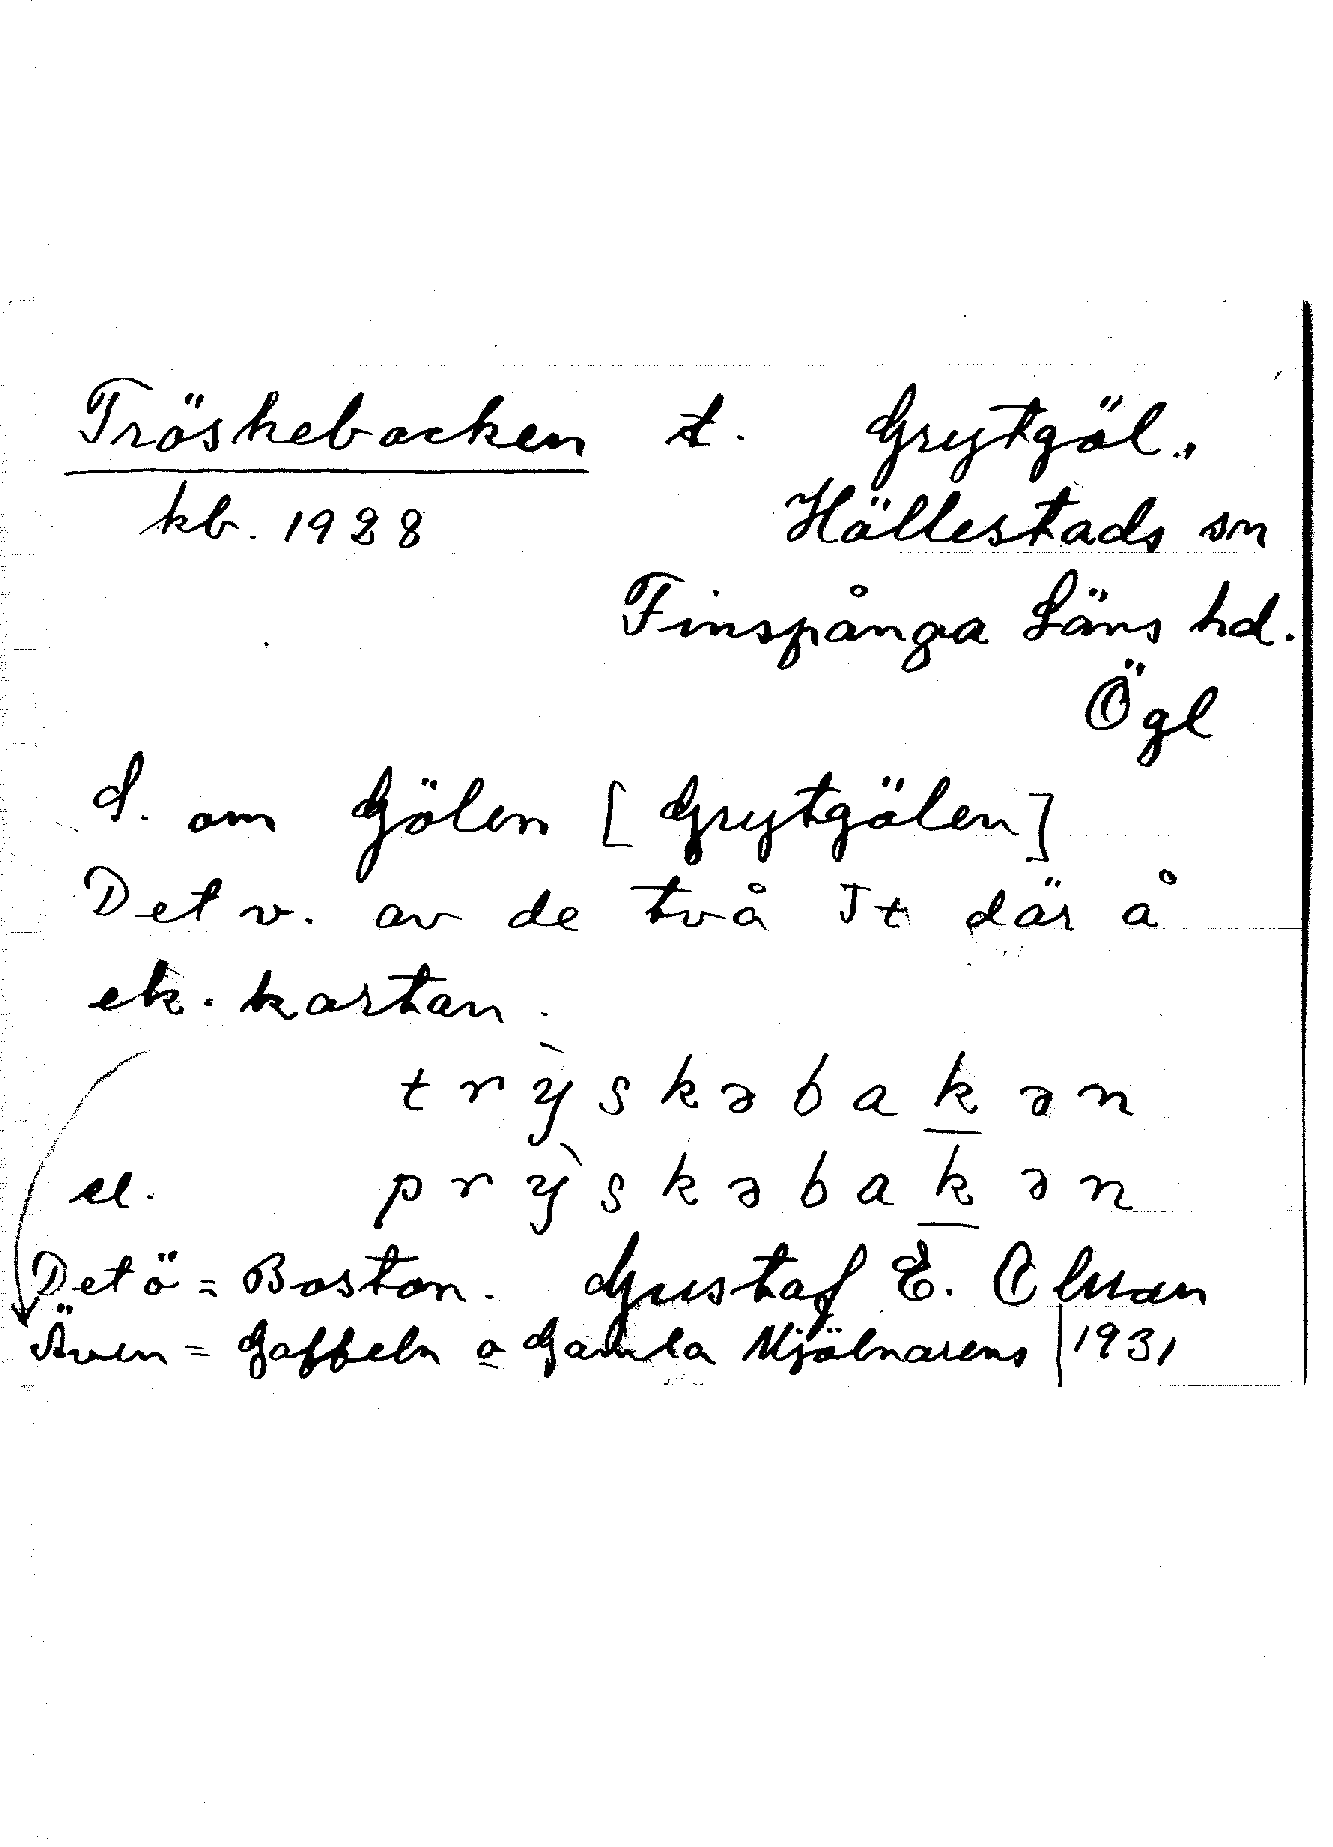 Tröskebacken t. Grytgöl.,
kb. 1928 Hällestads sn
Finspånga Läns hd.
Ögl
S. om Gölen [Grytgölen]
Det v. av de två Jt där å
ek. kartan.
trỳskəbakən
el. prỳskəbakən
Det ö = Boston. Gustaf E. Olman
Även = Gaffeln o Gamla Mjölnarens 1931